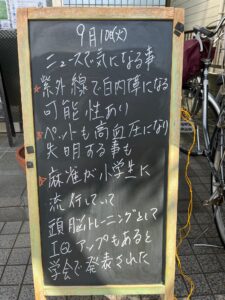 9月10日(火)
ニュースで気になる事
★紫外線で白内障になる
可能性あり
★ペットも高血圧になり
失明する事も
▷麻雀が小学生に
流行していて
頭脳トレーニングとして
IQアップもあると
学会で発表された